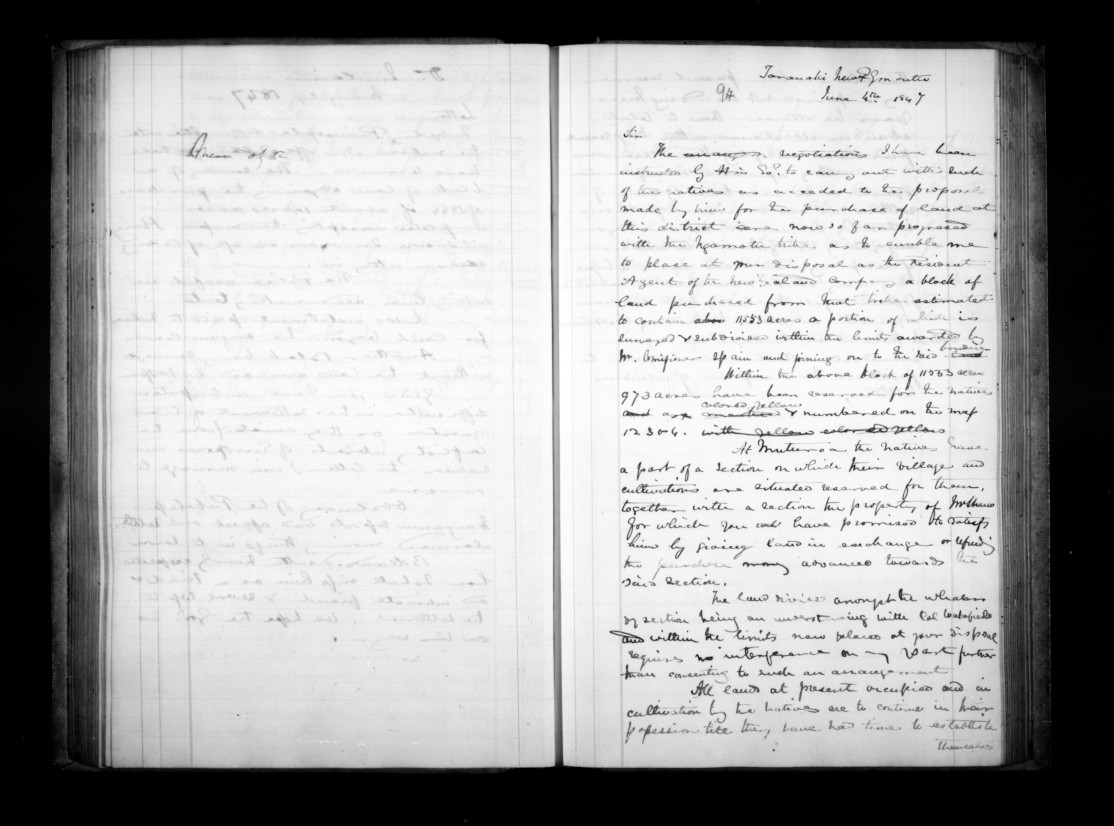 Taranaki New Plymouth
94 June 4th 1847
Sir
The negotiations I have been
instructed by His Exy. to carry out with such
of the natives as acceded to the proposal
made by him for the purchase of land at
this district are now so far progressed
with the Ngamotu tribe as to enable me
to place at your disposal as the Resident
Agent of the New Zealand Company a block of
land purchased from that tribe estimated
to contain about 11553 acres a portion of which is
surveyed & subdivided within the limits awarded by
Mr. Comissioner Spain and joining on to the said land
Within the above block of 11553 acres
973 acres have been reserved for the natives
and are colored yellow & numbered on the map
1 2 3 & 4. with yellow colored yellow
At Moturoa the natives have
a part of a section on which their village and
cultivations are situated reserved for them,
together with a section the property of
for which you have promised to satisfy
him by giving land in exchange or refunding
the purchase money advanced towards the
said section.
The land divided amongst the whalers
by section being an understanding with Col Wakefield
and within the limits now placed at your disposal
requires no interference on my part further
than consenting to such an arrangement
All lands at present occupied and in
cultivation by the natives are to continue in their
possession till they have had time to establish
themselves